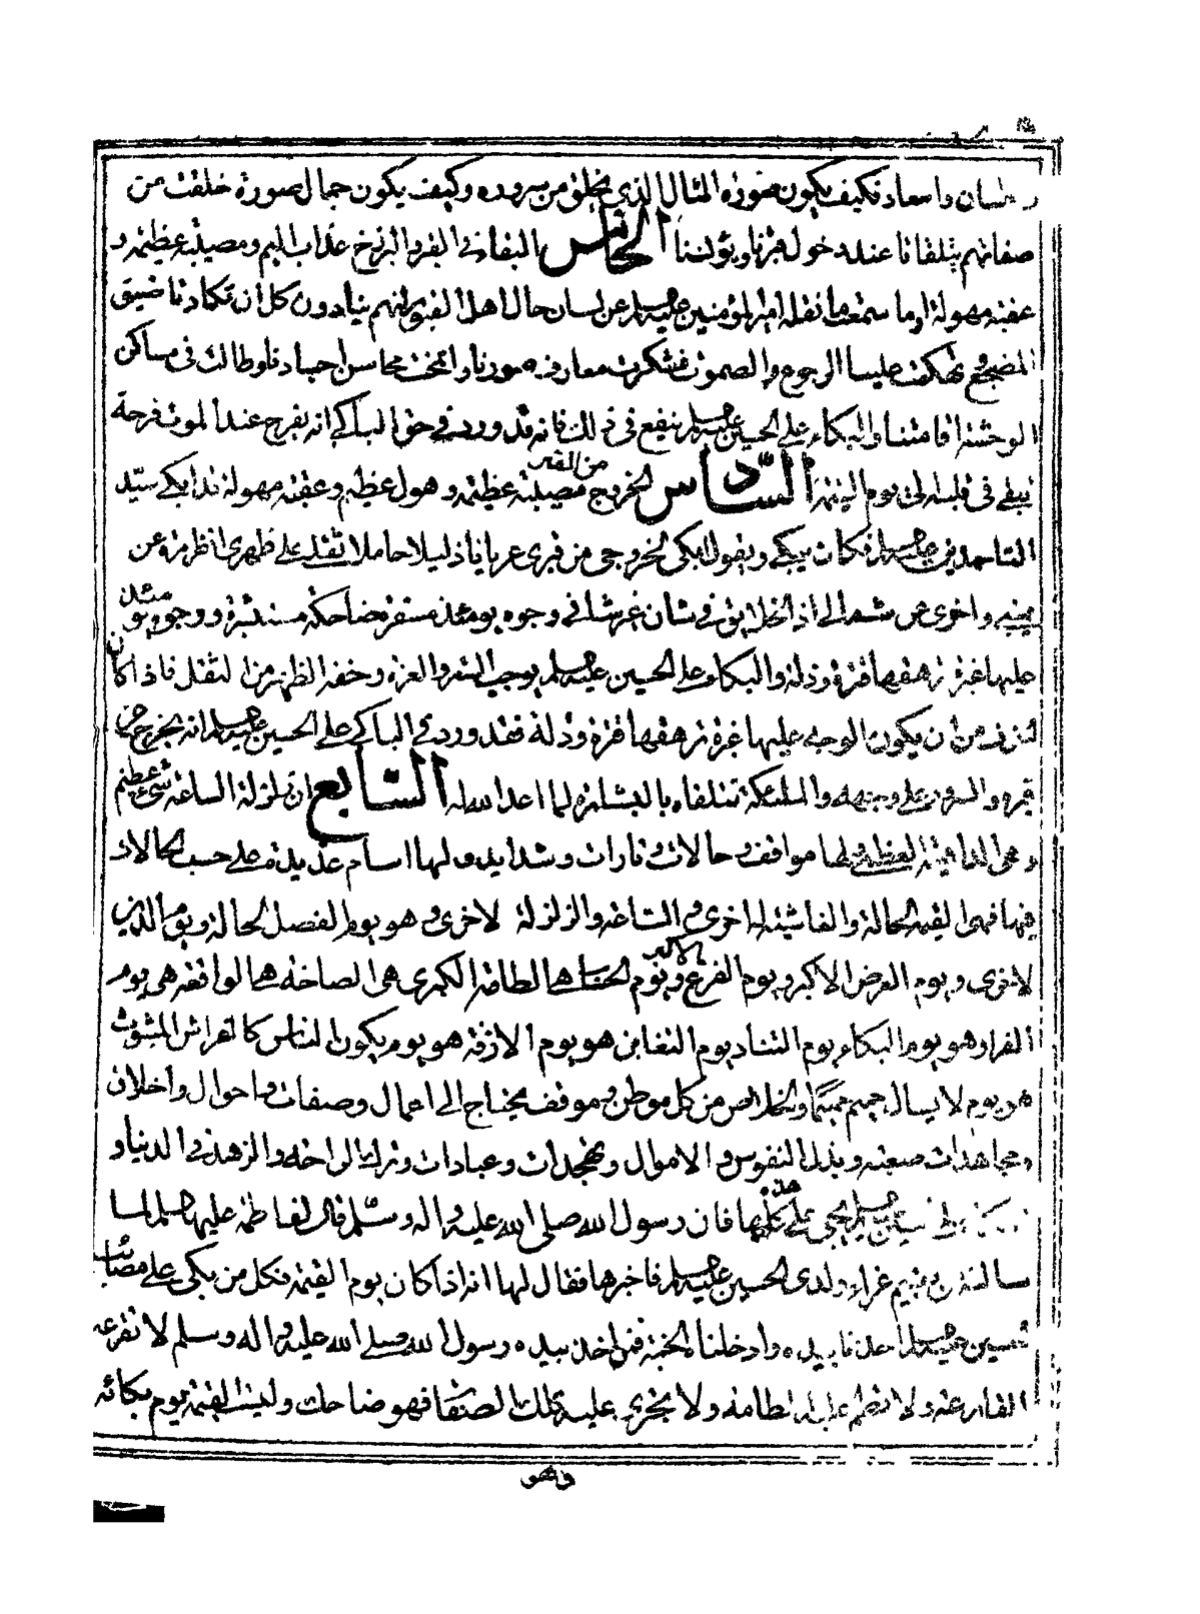 واسعاد فكيف يكون صورة المثال الذي يخلق من سروره وكيف يكون جمال صورة خلقت من
صفاتهم يتلقانا عند دخوله قبرنا ويؤنسنا الخامس البقاء في القبر والبرزخ عذاب اليم ومصيبة عظيمة و
عقبة مهولة او ما سمعت ما نقله امير المؤمنين عليه السلم عن لسان حال اهل القبور انهم ينادون كل ان تكاد نا ضيق
المضجع تهكمت علينا الرجوع والصموت فتنكرت معارف صورنا وانمحت محاسن اجسادنا وطالت في مساكن
الوحشة اقامتنا والبكاء على الحسين عليه السلم ينفع في ذلك فانه قد ورد في حق الباكي انه يفرح عند الموت فرحة
تبقى في قلبه الى يوم القيمة السادس الخروج من القبر مصيبة عظيمة وهول عظيم وعقبة مهولة ندا يبكي سيد
الساجدين عليه السلم فكان يبكي ويقول ابكي لخروجي من قبري عريانا ذليلا حاملا ثقلي على ظهري انظر مرة عن
يميني واخرى عن شمالي اذ الخلايق في شان غير شاني وجوه يومئذ مسفرة ضاحكة مستبشرة ووجوه يومئذ
عليها غبرة ترهقها قترة وذلة والبكاء على الحسين عليه السلم يوجب الستر والعزة وخفة الظهر من الثقل فاذا كان
من ان يكون الوجه عليها غبرة ترهقها قترة وذلة فقد ورد في الباكي على الحسين عليه السلم انه يخرج من
قبره والسرور على وجهه والملئكة تتلقاه بالبشارة لما اعد الله له السابع ان زلزلة الساعة شيء عظيم
وهي الداهية العظمى ولها مواقف وحالات وتارات وشدايد ولها اسام عديدة على حسب الحالات
فيها فهي القيمة الحالة والغاشية اخرى والساعة والزلزلة لاخرى وهو يوم الفصل لحالة ويوم الدين
لاخرى ويوم العرض الاكبر ويوم الفزع الاكبر ويوم الحساب هي الطامة الكبرى هي الصاخة هي الواقعة هي يوم
الفرار وهو يوم البكاء يوم التناد يوم التغابن هو يوم الازفة هو يوم يكون الناس كالفراش المبثوث
هو يوم لا يسال حميم حميما والخلاص من كل موطن وموقف يحتاج الى اعمال وصفات واحوال واخلاق
ومجاهدات صعبة وبذل النفوس والاموال وتهجدات وعبادات وترك الراحة والزهد في الدنيا و
على هذه كلها فان رسول الله صلى الله عليه واله وسلم قال لفاطمة عليها السلم لما
سالته من يقيم عزاء ولدي الحسين عليه السلم فاخبرها فقال لها انه اذا كان يوم القيمة فكل من بكى على مصائب
الحسين عليه السلم اخذنا بيده وادخلنا الجنة فمن اخذ بيده رسول الله صلى الله عليه واله وسلم لا تقرعه
القارعة ولا تطم عليه الطامة ولا يجري عليه تلك الصفات فهو ضاحك وليست القيمة يوم بكائه